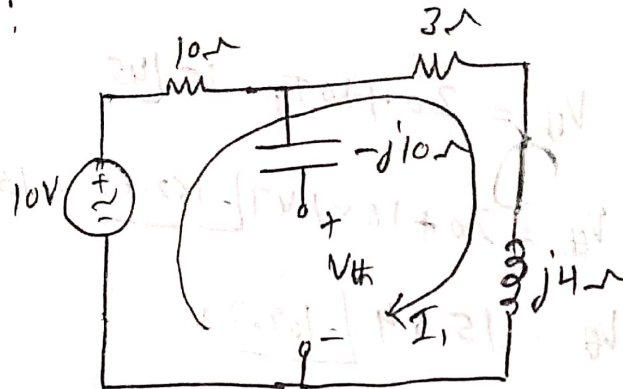 10Ω
3Ω
10V
+
-
-j10Ω
+
Vth
-
I₁
j4Ω